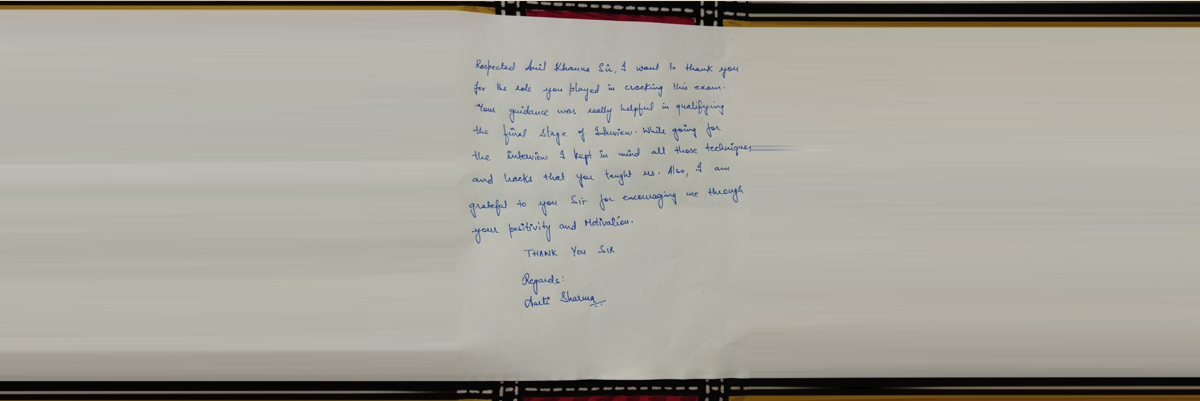 Respected Anil Khanna Sir, I want to thank you
for the role you played in cracking this exam.
Your guidance was really helpful in qualifying
the final stage of Interview. While going for
the interview I kept in mind all those techniques
and hacks that you taught us. Also, I am
grateful to you Sir for encouraging me through
your positivity and Motivation.
THANK YOU SIR
Regards:
Aarti Sharma